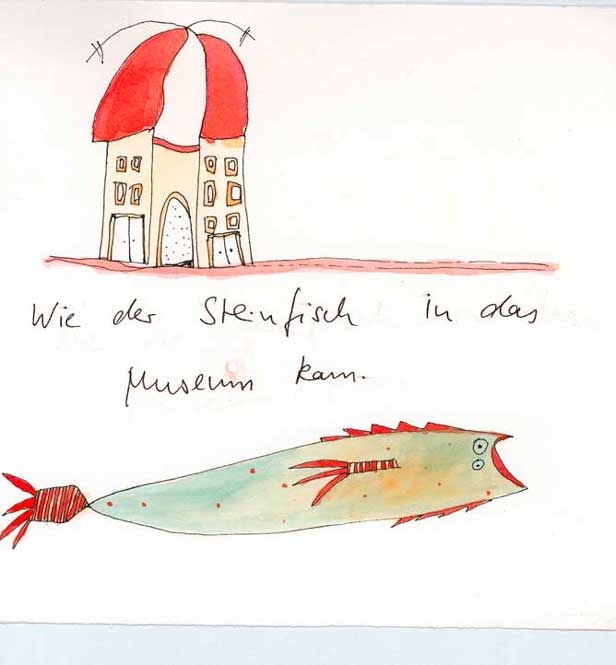 Wie der Steinfisch in das
Museum kam.